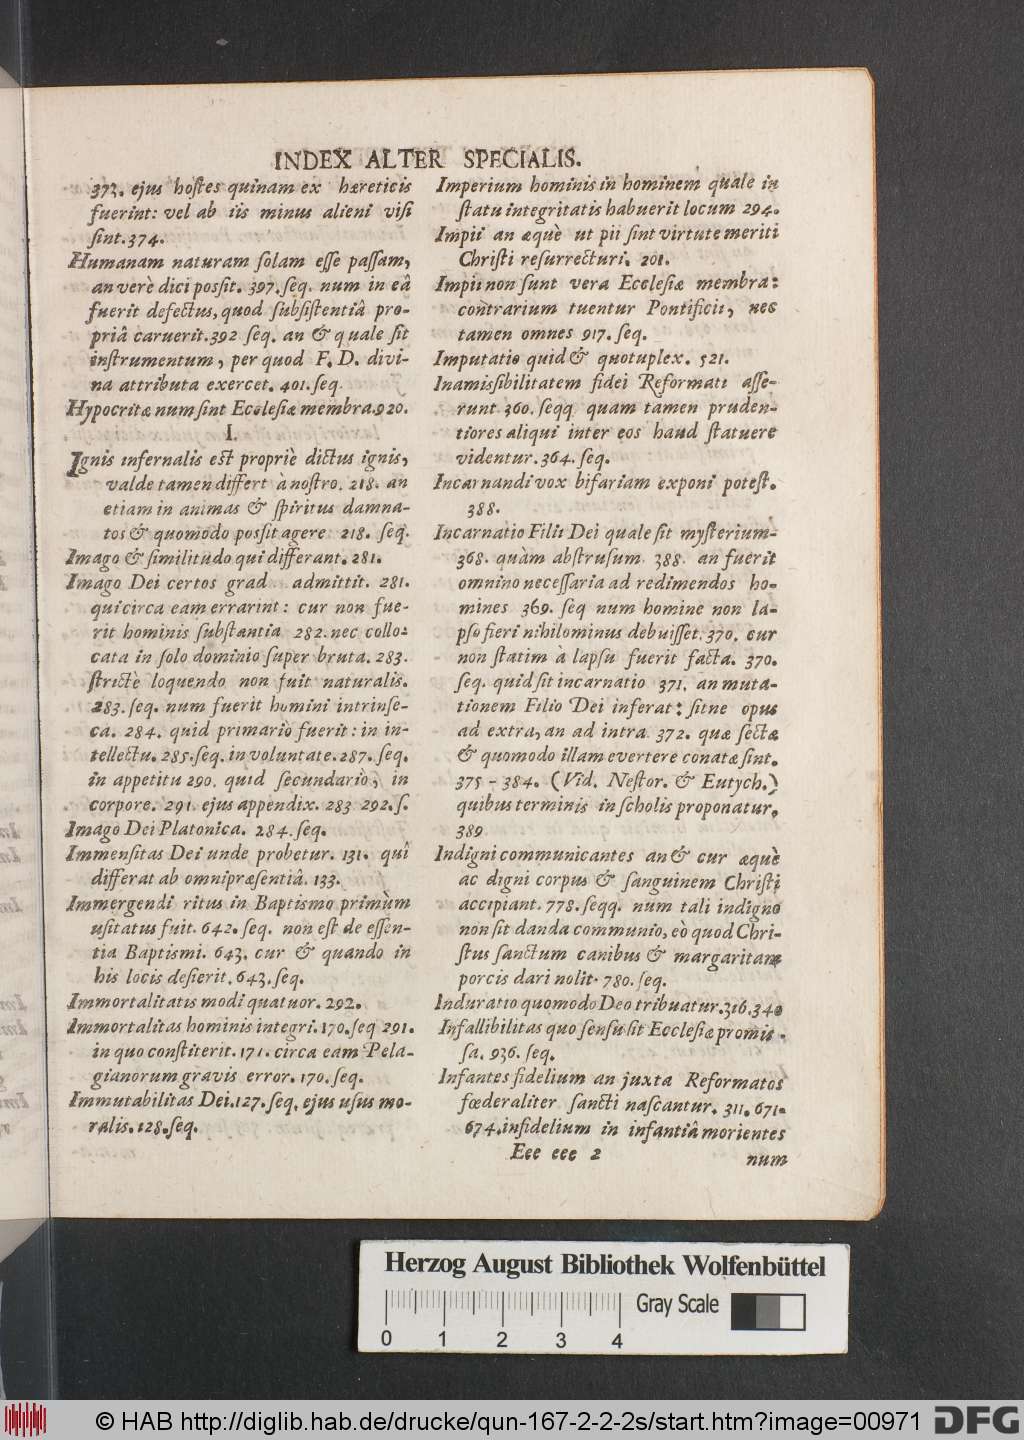 INDEX ALTER SPECIALIS.
373. ejus hoſtes quinam ex hæreticis
fuerint: vel ab iis minus alieni viſi
ſint. 374.
Humanam naturam ſolam eſſe paſſam,
an verè dici poſſit. 397. ſeq. num in eâ
fuerit defectus, quod ſubſiſtentiâ pro-
priâ caruerit. 392 ſeq. an & quale ſit
inſtrumentum, per quod F. D. divi-
na attributa exercet. 401. ſeq.
Hypocritæ num ſint Eccleſiæ membra. 920.
I.
Ignis infernalis eſt propriè dictus ignis,
valde tamen differt à noſtro. 218. an
etiam in animas & ſpiritus damna-
tos & quomodo poſſit agere. 218. ſeq.
Imago & ſimilitudo qui differant. 281.
Imago Dei certos grad admittit. 281.
qui circa eam errarint: cur non fue-
rit hominis ſubſtantia 282. nec collo-
cata in ſolo dominio ſuper bruta. 283.
ſtrictè loquendo non fuit naturalis.
283. ſeq. num fuerit homini intrinſe-
ca. 284. quid primariò fuerit: in in-
tellectu. 285. ſeq. in voluntate. 287. ſeq.
in appetitu 290. quid ſecundariò, in
corpore. 291. ejus appendix. 283. 292. ſ.
Imago Dei Platonica. 284. ſeq.
Immenſitas Dei unde probetur. 131. quî
differat ab omnipræſentiâ. 133.
Immergendi ritus in Baptiſmo primùm
uſitatus fuit. 642. ſeq. non eſt de eſſen-
tia Baptiſmi. 643. cur & quando in
his locis deſierit. 643. ſeq.
Immortalitatis modi quatuor. 292.
Immortalitas hominis integri. 170. ſeq 291.
in quo conſtiterit. 171. circa eam Pela-
gianorum gravis error. 170. ſeq.
Immutabilitas Dei. 127. ſeq. ejus uſus mo-
ralis. 128. ſeq.
Imperium hominis in hominem quale in
ſtatu integritatis habuerit locum 294.
Impii an æquè ut pii ſint virtute meriti
Chriſti reſurrecturi. 201.
Impii non ſunt vera Eccleſiæ membra:
contrarium tuentur Pontificii, nec
tamen omnes 917. ſeq.
Imputatio quid & quotuplex. 521.
Inamiſſibilitatem fidei Reformati aſſe-
runt. 360. ſeqq. quam tamen pruden-
tiores aliqui inter eos haud ſtatuere
videntur. 364. ſeq.
Incarnandi vox bifariam exponi poteſt.
388.
Incarnatio Filii Dei quale ſit myſterium
368. quàm abſtruſum. 388. an fuerit
omnino neceſſaria ad redimendos ho-
mines 369. ſeq num homine non la-
pſo fieri nihilominus debuiſſet. 370. cur
non ſtatim à lapſu fuerit facta. 370.
ſeq. quid ſit incarnatio 371. an muta-
tionem Filio Dei inferat: ſitne opus
ad extra, an ad intra. 372. quæ ſectæ
& quomodo illam evertere conatæ ſint.
375 - 384. (Vid. Neſtor. & Eutych.)
quibus terminis in ſcholis proponatur.
389
Indigni communicantes an & cur æquè
ac digni corpus & ſanguinem Chriſti
accipiant. 778. ſeqq. num tali indigno
non ſit danda communio, eò quod Chri-
ſtus ſanctum canibus & margaritam
porcis dari nolit. 780. ſeq.
Induratio quomodo Deo tribuatur. 316. 340
Infallibilitas quo ſenſu ſit Eccleſiæ promiſ-
ſa. 936. ſeq.
Infantes fidelium an juxta Reformatos
fœderaliter ſancti naſcantur. 311. 671.
674. infidelium in infantiâ morientes
Eee eee 2
num
Herzog August Bibliothek Wolfenbüttel
Gray Scale
0 1 2 3 4
© HAB http://diglib.hab.de/drucke/qun-167-2-2-2s/start.htm?image=00971
DFG